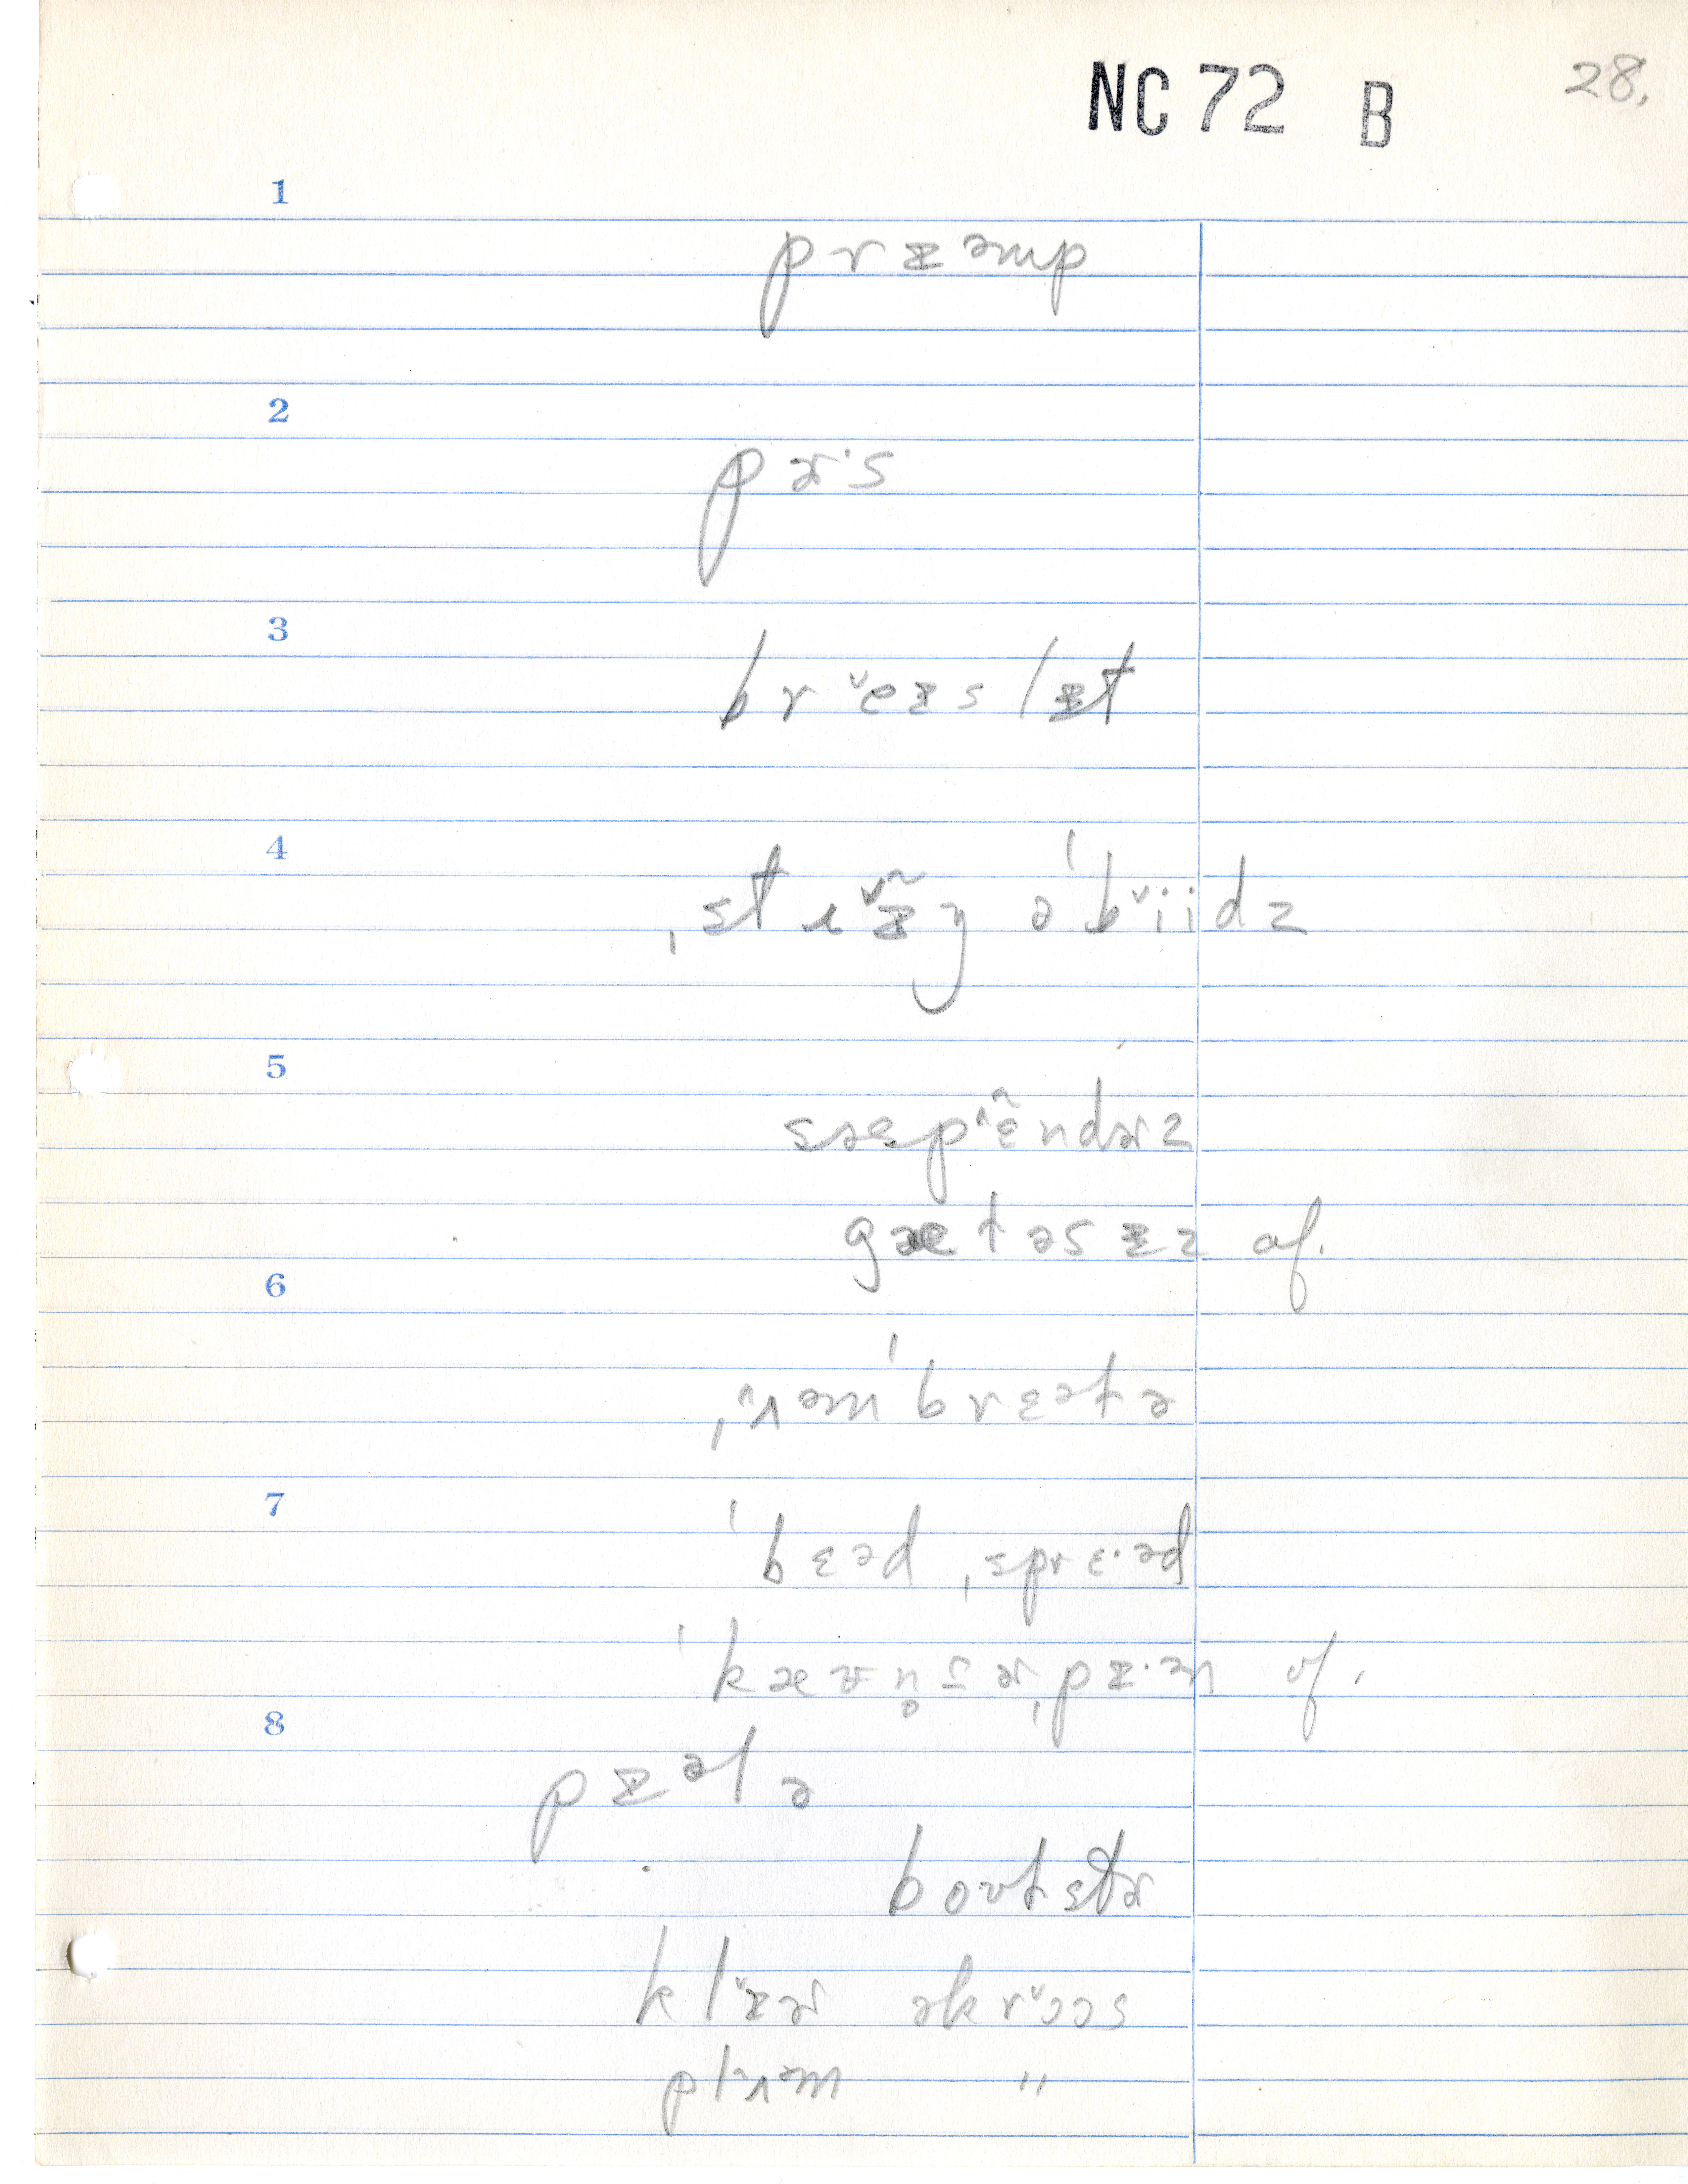 NC 72 B 28.
1
prɪəmp
2
pɚ·s
3
brˇeɪslɪt
4
ˌstɹˇɪ̃ŋ əˈbˇiidz
5
səspˆɛ̃ndɚz
gæləsɪz of.
6
ˌˆʌəmˈbrɛələ
7
ˈbɛəd ˌsprɛ·əd
ˈkæʊn̥tɚˌpɪ·ən of.
8
pɪələ
boʊlstɚ
klˇɪɚ əkrˇɔəs
plˆʌəm "